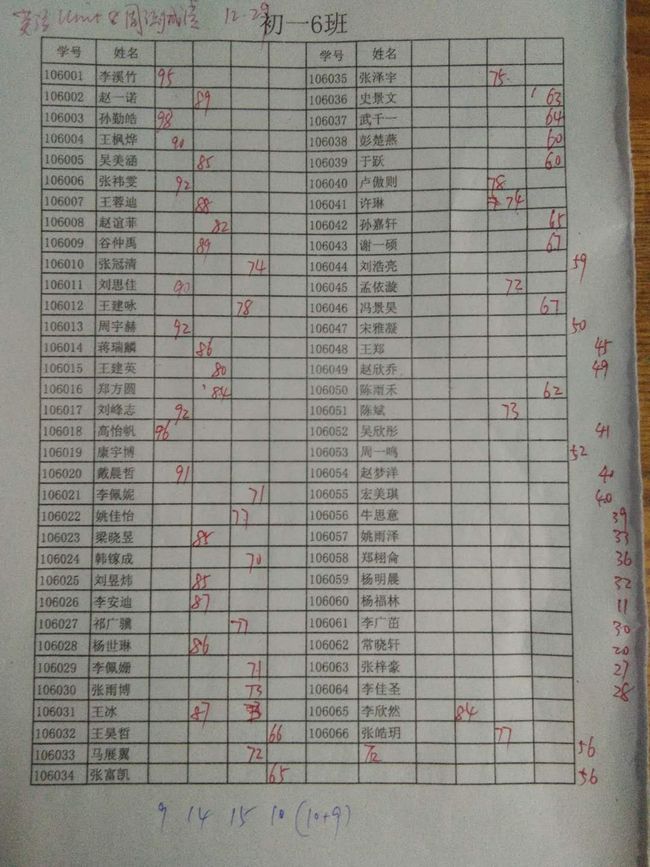 英语 Unit 8 周测成绩 12.29
初一6班
学号 姓名 学号 姓名
106001 李溪竹 95 106035 张泽宇 75
106002 赵一诺 89 106036 史景文 63
106003 孙勤皓 98 106037 武千一 64
106004 王枫烨 90 106038 彭楚燕 60
106005 吴美涵 85 106039 于跃 60
106006 张祎雯 92 106040 卢傲则 78
106007 王蓉迪 88 106041 许琳 74
106008 赵谊菲 82 106042 孙嘉轩 65
106009 谷仲禹 89 106043 谢一硕 67
106010 张冠清 74 106044 刘浩亮 59
106011 刘思佳 90 106045 孟依漩 72
106012 王建咏 78 106046 冯景昊 67
106013 周宇赫 92 106047 宋雅凝 50
106014 蒋瑞麟 86 106048 王郑 45
106015 王建英 80 106049 赵欣乔 49
106016 郑方圆 84 106050 陈雨禾 62
106017 刘峰志 92 106051 陈斌 73
106018 高怡帆 96 106052 吴欣彤 41
106019 康宇博 106053 周一鸣 52
106020 戴晨哲 91 106054 赵梦洋 40
106021 李佩妮 71 106055 宏美琪 40
106022 姚佳怡 77 106056 牛思意 39
106023 梁晓昱 85 106057 姚雨泽 33
106024 韩镓成 70 106058 郑栩侖 36
106025 刘昱炜 85 106059 杨明晨 32
106026 李安迪 87 106060 杨福林 11
106027 祁广骥 77 106061 李广茁 30
106028 杨世琳 86 106062 常晓轩 20
106029 李佩姗 71 106063 张梓豪 27
106030 张雨博 73 106064 李佳圣 28
106031 王冰 87 106065 李欣然 84
106032 王昊哲 66 106066 张皓玥 77
106033 马展翼 72 72 56
106034 张富凯 65 56
9 14 15 10 (10+9)